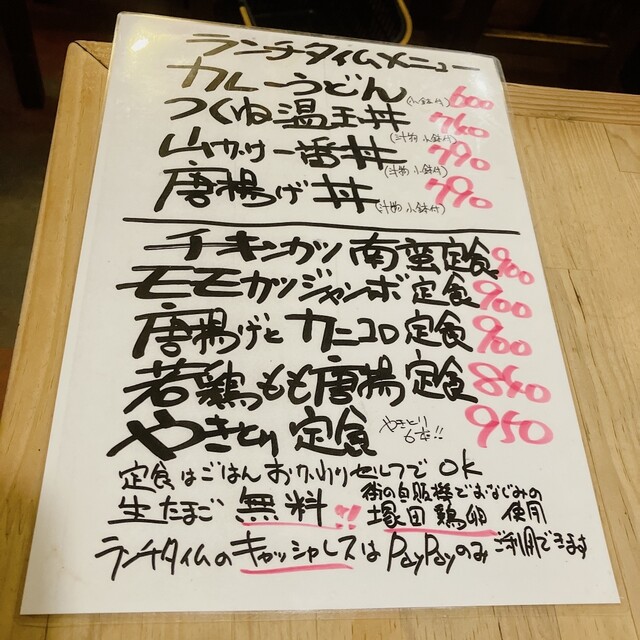 ランチタイムメニュー
カレーうどん(小鉢付)600
つくね温玉丼(汁物小鉢付)740
山かけ一番丼(汁物小鉢付)790
唐揚げ丼(汁物小鉢付)790
チキンカツ南蛮定食900
モモカツジャンボ定食900
唐揚げとカニコロ定食900
若鶏もも唐揚定食840
やきとり定食 やきとり6本!! 950
定食はごはんおかわりセルフでOK
生たまご無料!! 街の自販機でおなじみの塚田鶏卵使用
ランチタイムのキャッシャレスはPayPayのみご利用できます